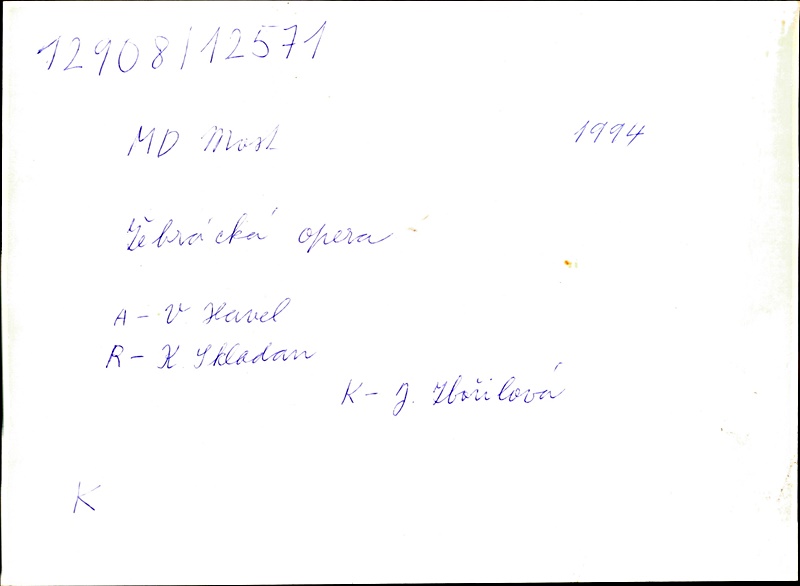 12908/12571
MD Most 1994
Žebrácká opera
A - V Havel
R - K. Skladan
K - J. Zbořilová
K